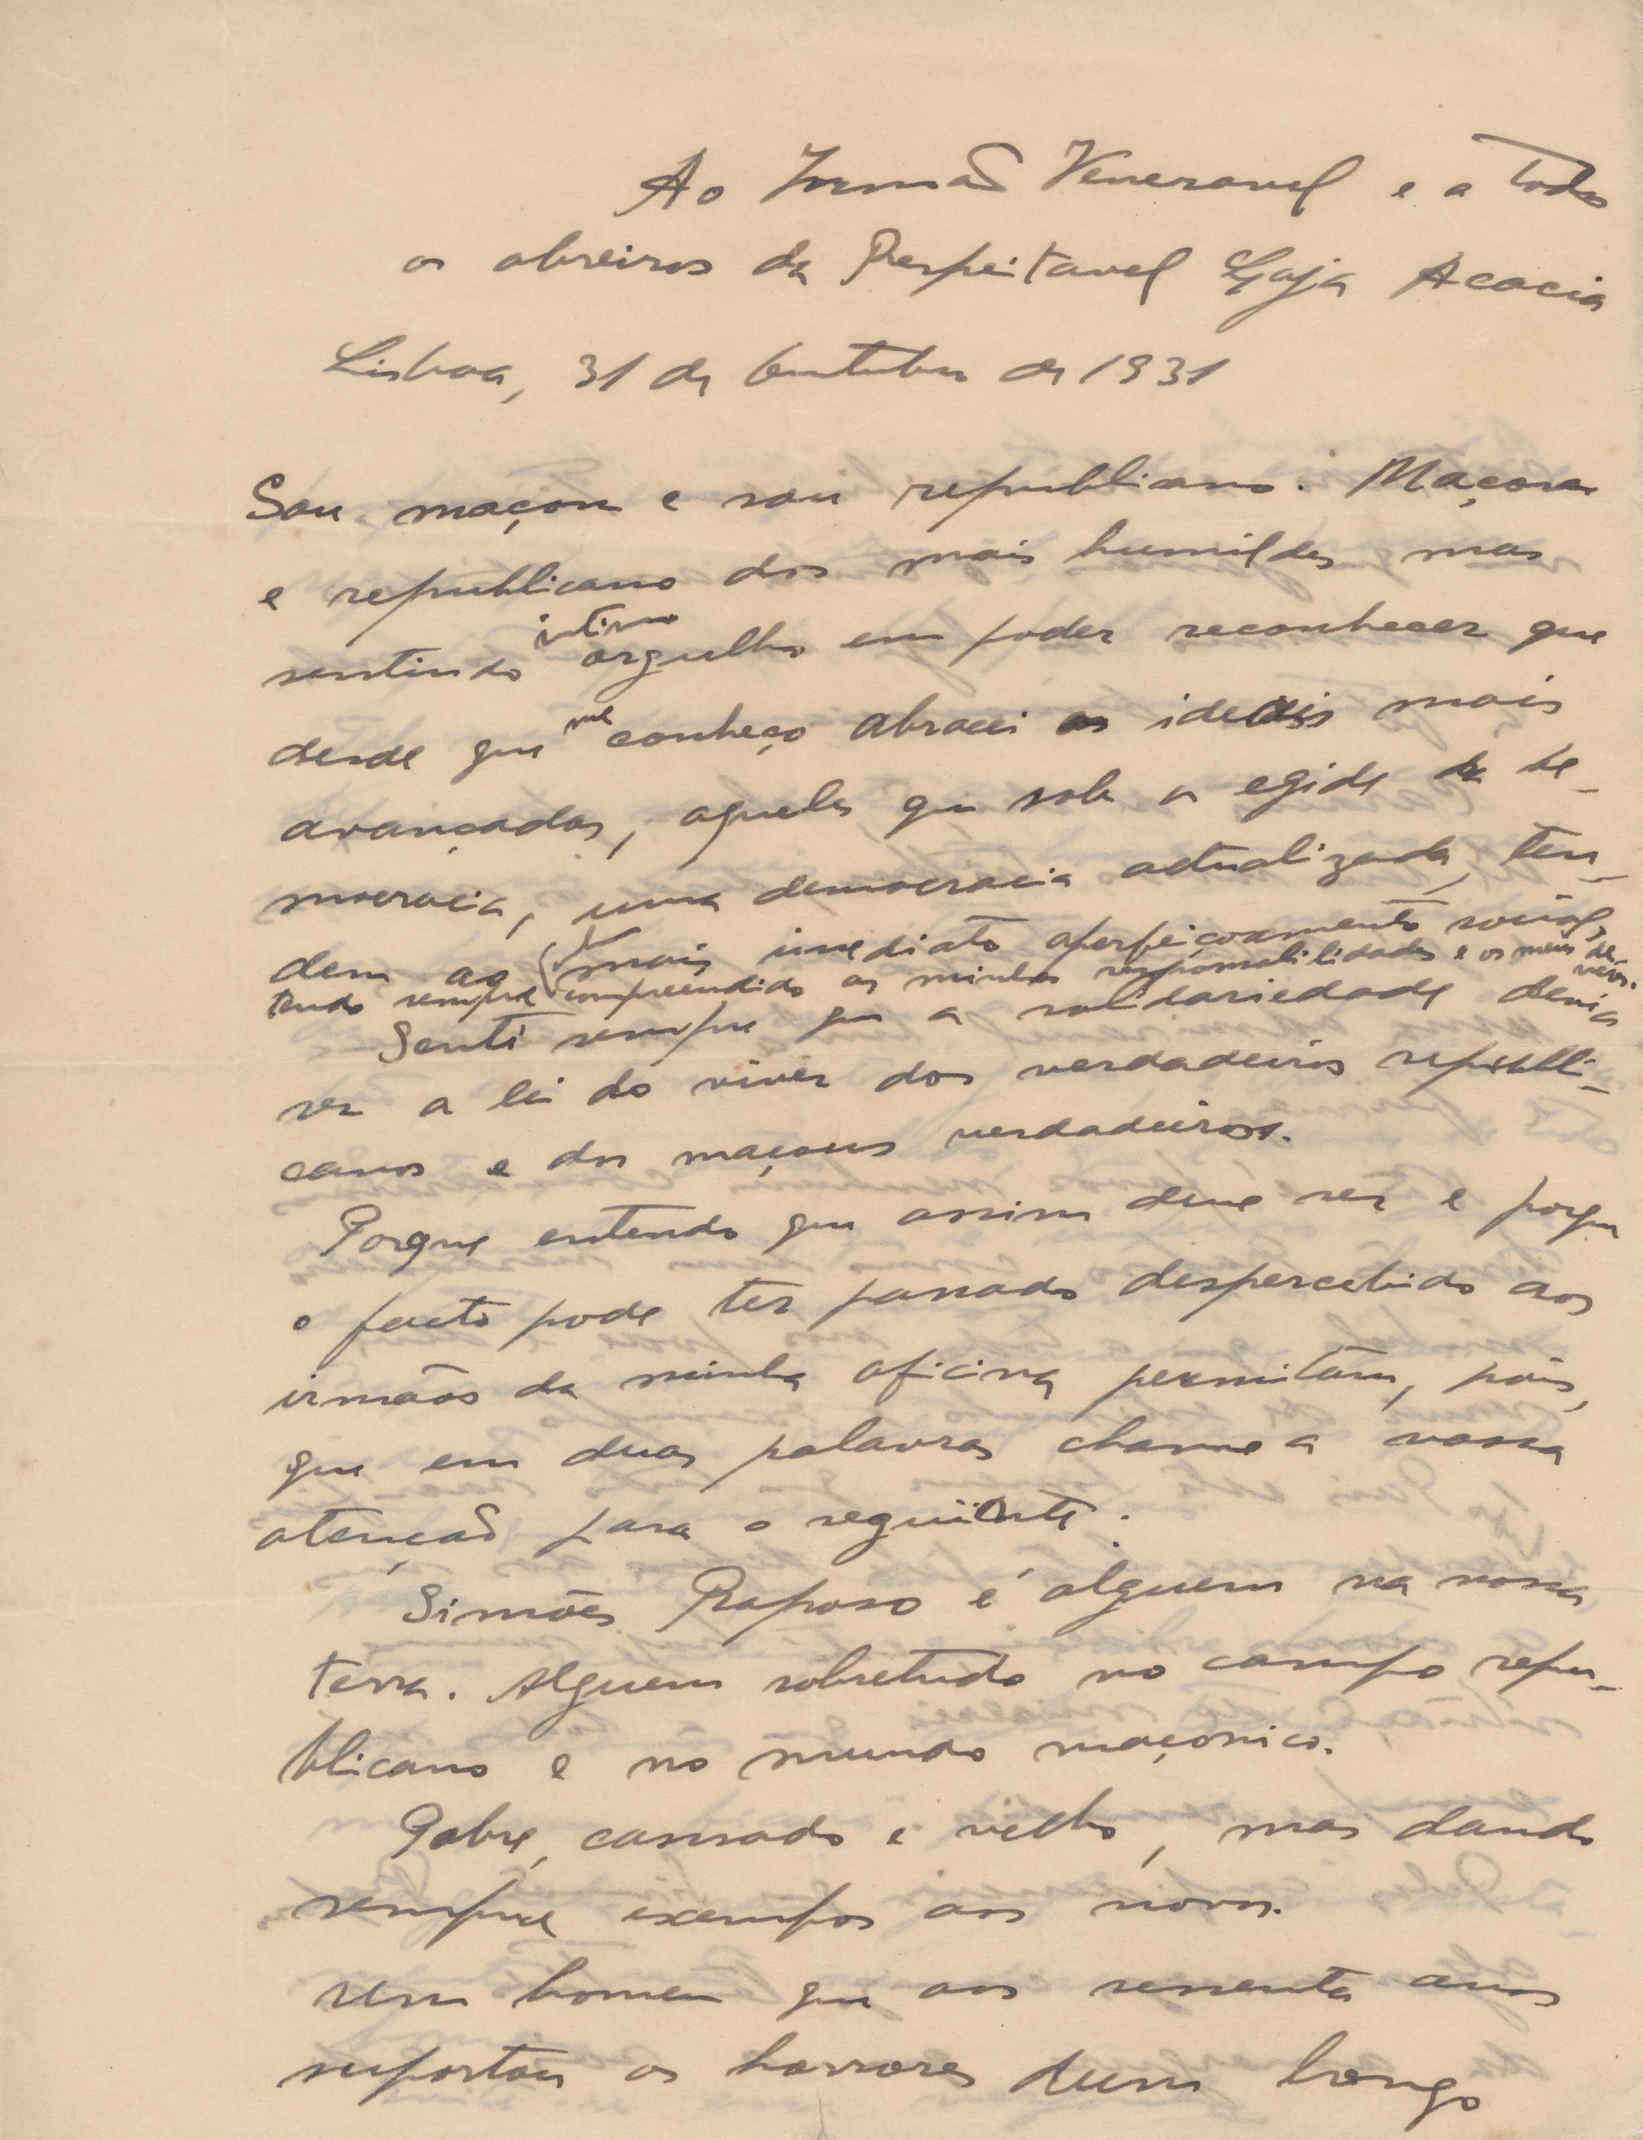 Ao Irmão Veneravel e a todos
os obreiros da Respeitavel Loja Acacia
Lisboa, 31 de Outubro de 1931
Sou maçon e sou republicano. Maçon
e republicano dos mais humildes mas
sentindo intimo orgulho em poder reconhecer que
desde que me conheço abracei os ideais mais
avançados, aqueles que sob a egide da de-
mocracia, uma democracia actualizada, ten-
dem ao mais imediato aperfeiçoamento social,
tendo sempre compreendido as minhas responsabilidades e os meus deveres.
Senti sempre que a solidariedade devia
ser a lei do viver dos verdadeiros republi-
canos e dos maçons verdadeiros.
Porque entendo que assim deve ser e porque
o facto pode ter passado despercebido aos
irmãos da minha oficina permitam, pois,
que em duas palavras chame a vossa
atenção para o seguinte.
Simões Raposo é alguem na nossa
terra. Alguem sobretudo no campo repu-
blicano e no mundo maçonico.
Pobre, cansado e velho, mas dando
sempre exempos aos novos.
Um homem que aos sessenta anos
suportou os horrores dum longo